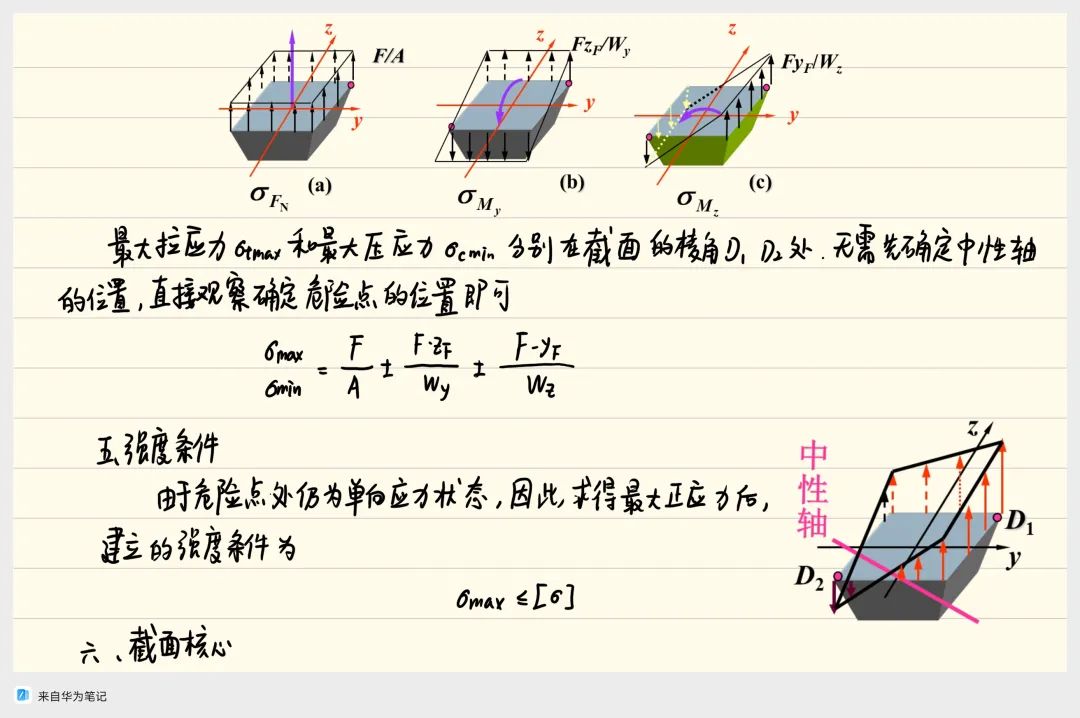 z
F/A
y
σ_{F_N} (a)
z
Fz_F/W_y
y
σ_{M_y} (b)
z
Fy_F/W_z
y
σ_{M_z} (c)
最大拉应力 σtmax 和最大压应力 σcmin 分别在截面的棱角D₁ D₂处.无需先确定中性轴
的位置,直接观察确定危险点的位置即可
σmax
σmin = F/A ± F·z_F/W_y ± F-y_F/W_z
五、强度条件
由于危险点处仍为单向应力状态,因此,求得最大正应力后,
建立的强度条件为
σmax ≤[σ]
中性轴
z
D₁
y
D₂
六、截面核心
来自华为笔记